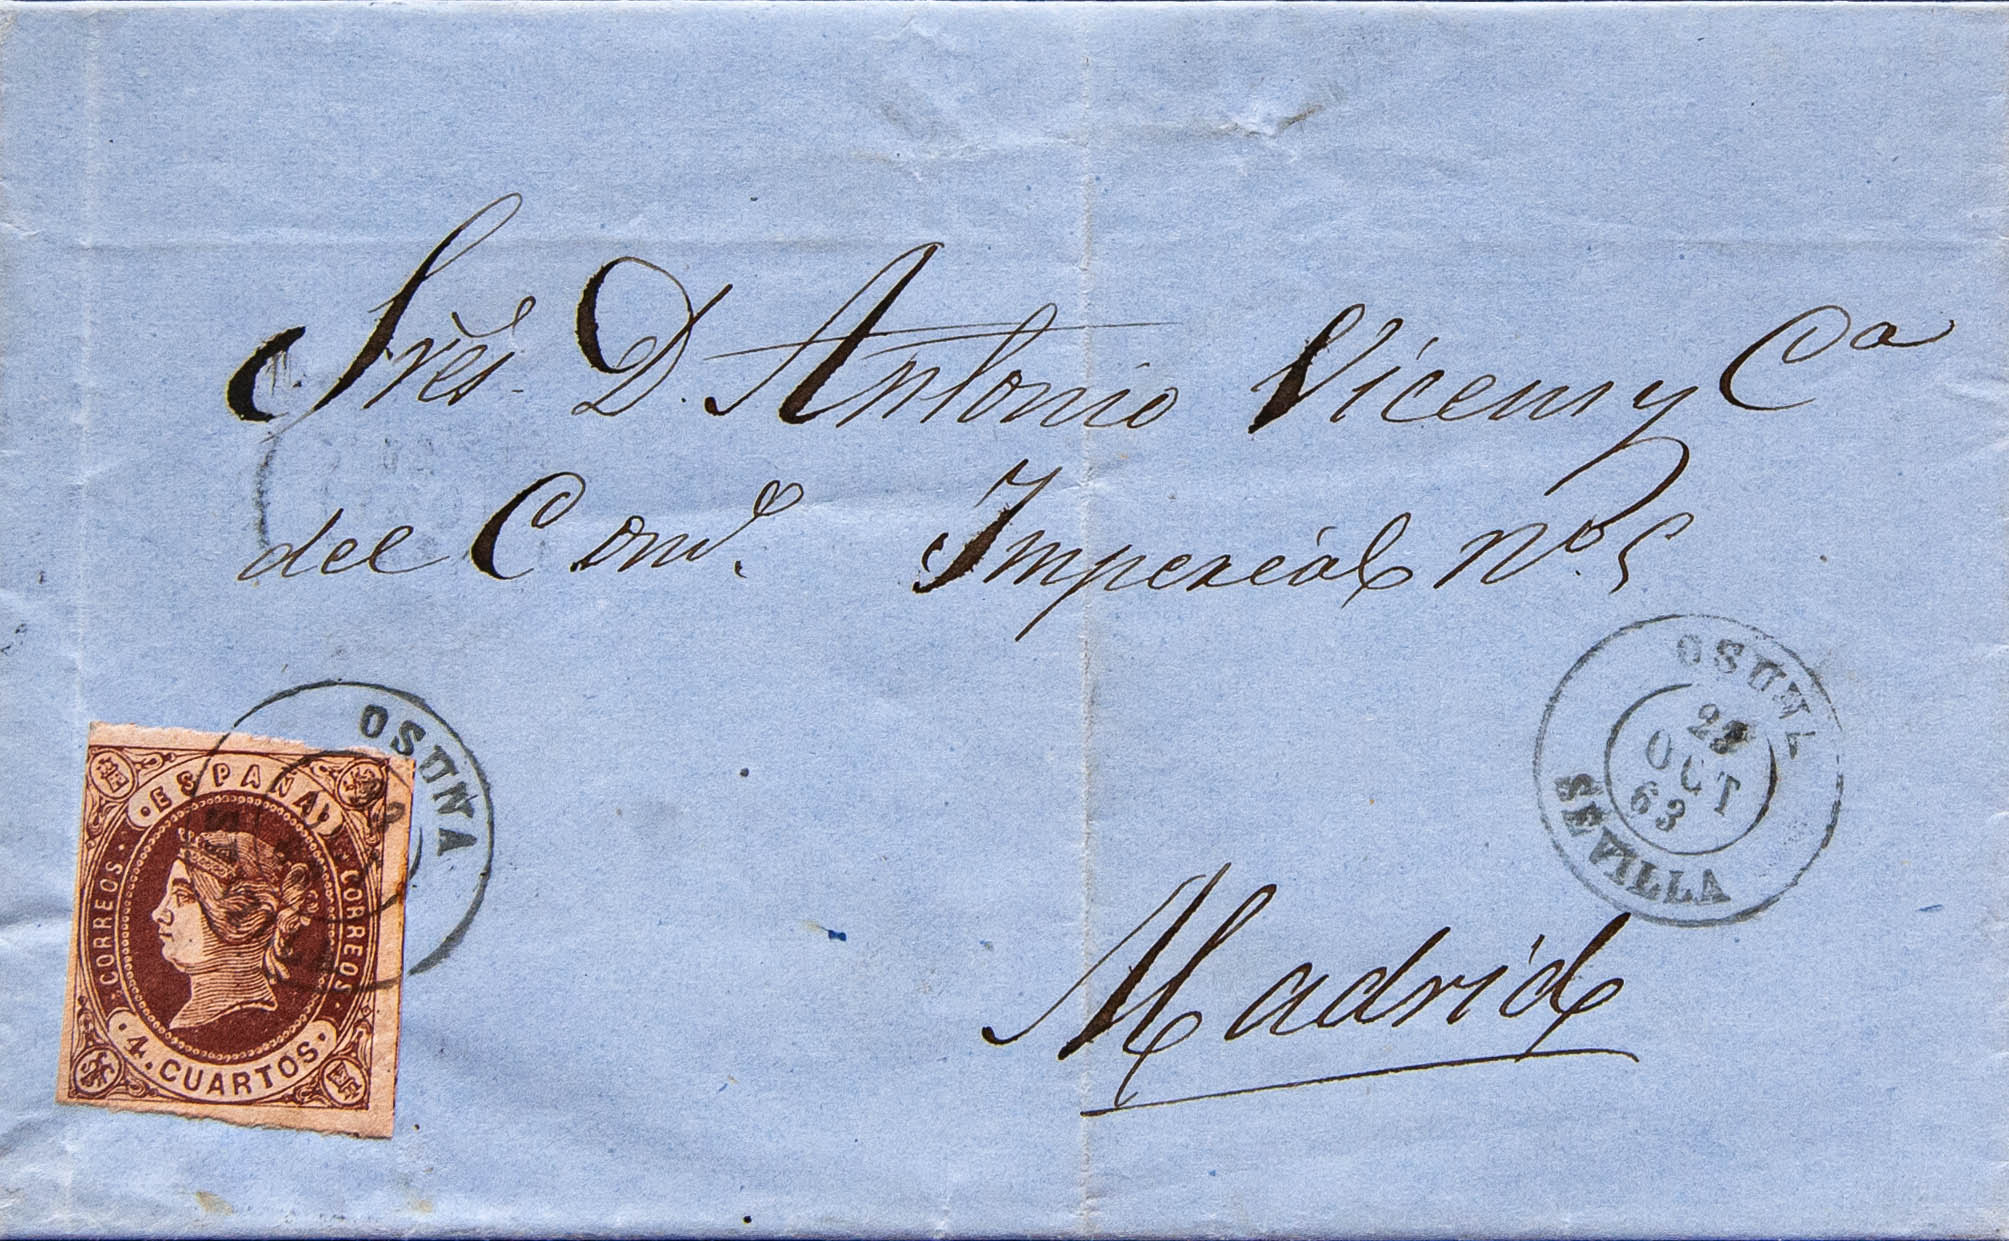 Sres. D. Antonio Vicens y Cª
del Comº. Imperial nº. 5
Madrid
OSUNA
23
OCT
63
SEVILLA
OSUNA
ESPAÑA
CORREOS
CORREOS
4. CUARTOS.